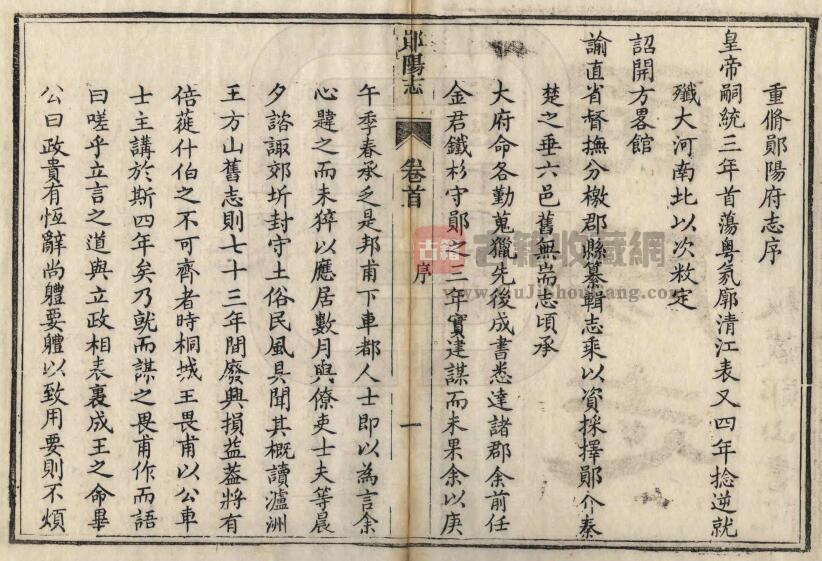 重脩鄖陽府志序
皇帝嗣統三年首蕩粤氛廓清江表又四年捻逆就
殲大河南北以次敉定
詔開方畧館
諭直省督撫分檄郡縣纂輯志乘以資採擇鄖介秦
楚之垂六邑舊無耑志頃承
大府命各勤蒐獵先後成書悉達諸郡余前任
金君鐵杉守鄖之三年實建謀而未果余以庚
鄖陽志
卷首
序
一
午季春承乏是邦甫下車都人士即以為言余
心韙之而未猝以應居數月與僚吏士夫等晨
夕諮諏郊圻封守土俗民風具聞其概讀瀘洲
王方山舊志則七十三年間廢興損益葢將有
倍蓰什伯之不可齊者時桐城王畏甫以公車
士主講於斯四年矣乃就而謀之畏甫作而語
曰嗟乎立言之道與立政相表裏成王之命畢
公曰政貴有恆辭尚體要體以致用要則不煩
古籍
古籍收藏網
www.GuJiShouCang.com